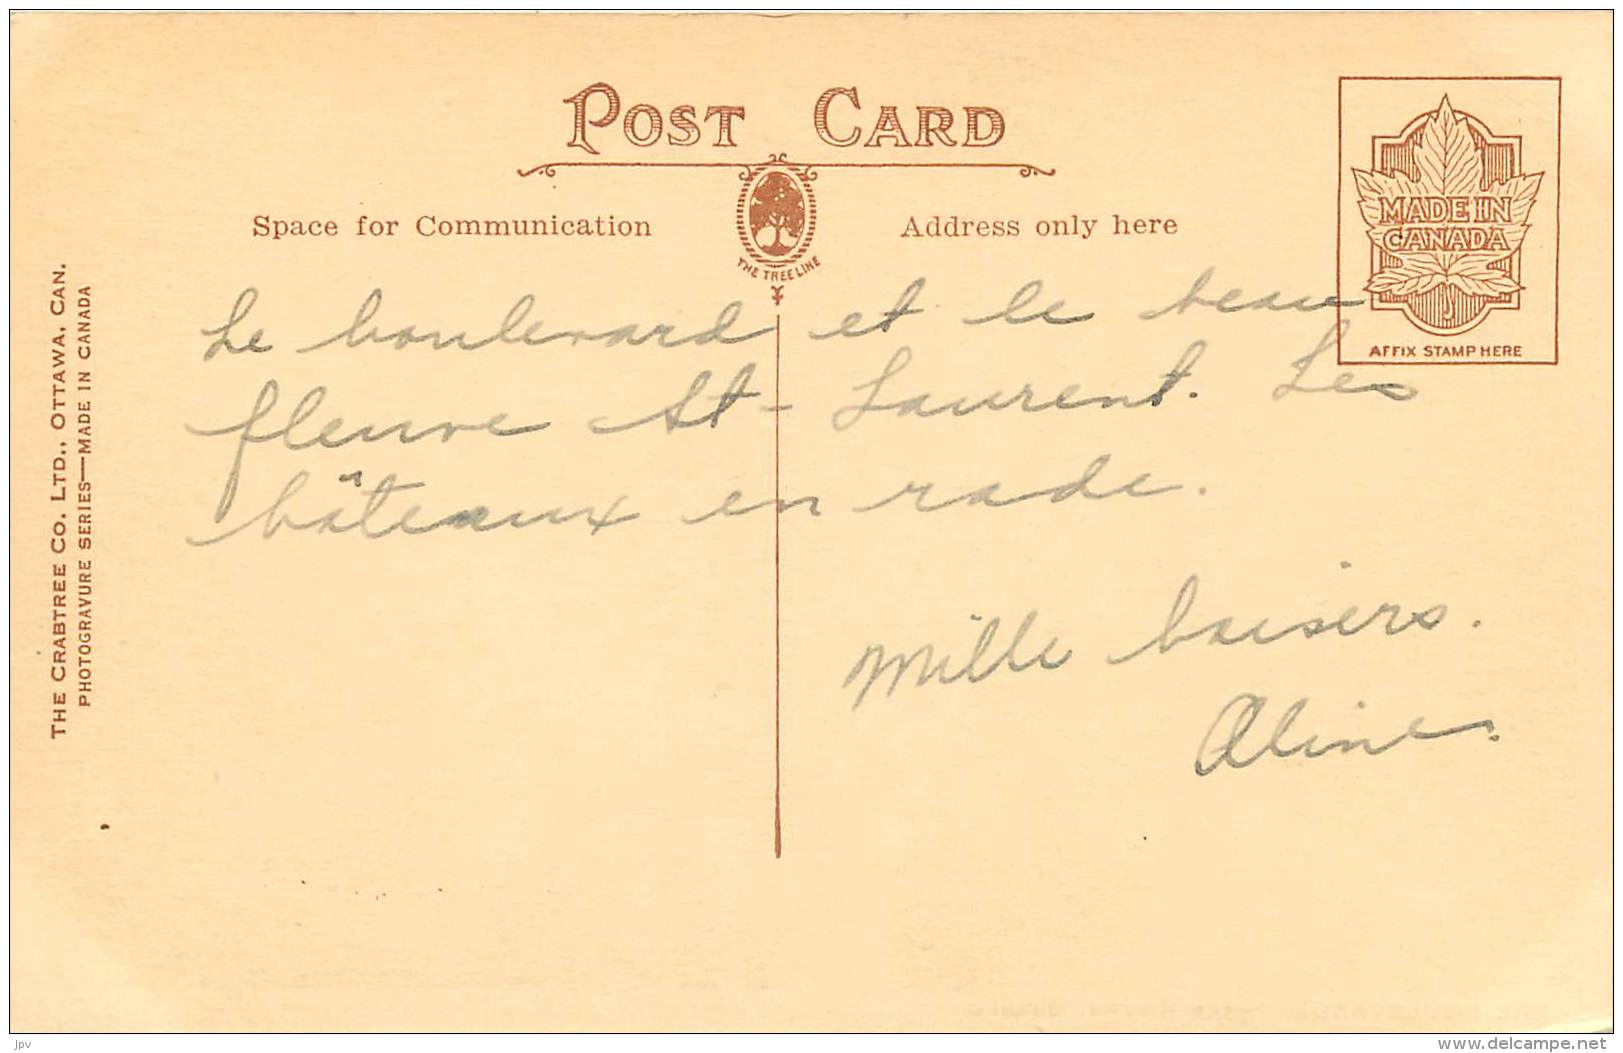 POST CARD
Space for Communication
Address only here
THE TREE LINE
MADE IN
CANADA
AFFIX STAMP HERE
THE CRABTREE CO. LTD., OTTAWA, CAN.
PHOTOGRAVURE SERIES—MADE IN CANADA
Le boulevard et le beau
fleuve St-Laurent. Les
bâteaux en rade.
Mille baisers.
Aline.
jpv
delcampe.net